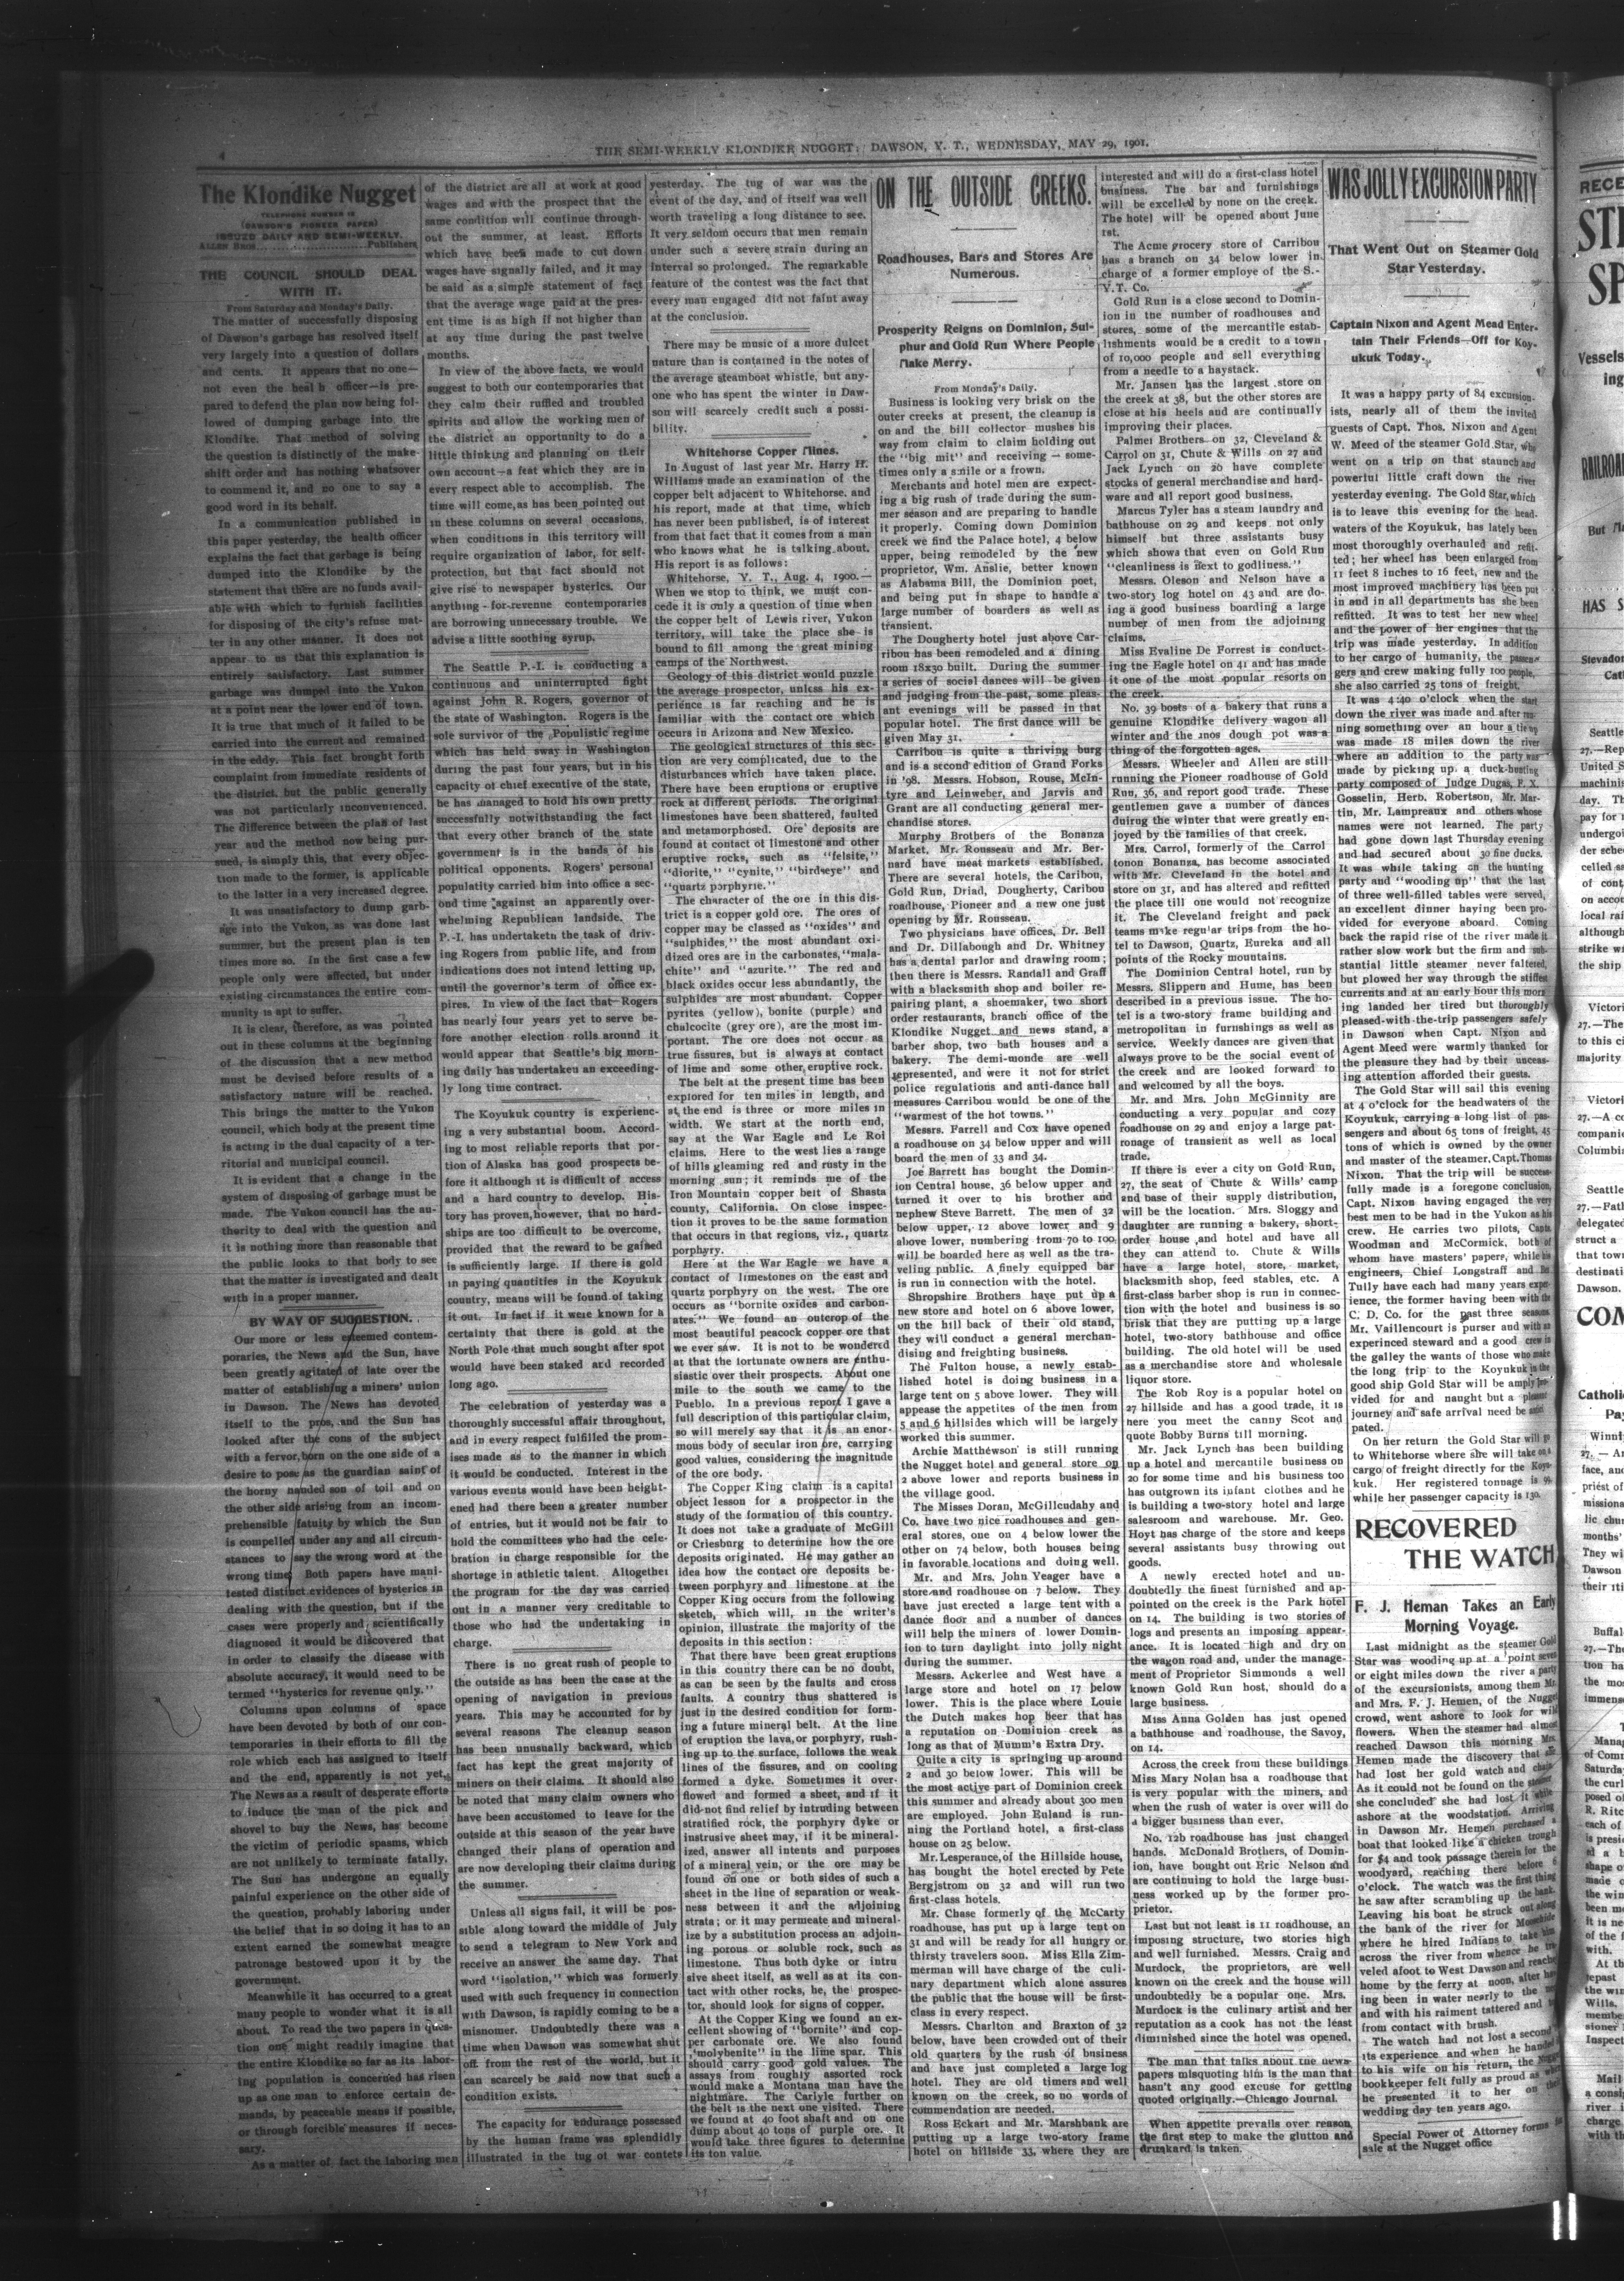 4
THE SEMI-WEEKLY KLONDIKE NUGGET: DAWSON, Y. T., WEDNESDAY, MAY 29, 1901.
The Klondike Nugget
TELEPHONE NUMBER 12
(DAWSON'S PIONEER PAPER)
ISSUED DAILY AND SEMI-WEEKLY.
ALLEN BROS..............Publishers
THE COUNCIL SHOULD DEAL
WITH IT.
From Saturday and Monday's Daily.
The matter of successfully disposing
of Dawson's garbage has resolved itself
very largely into a question of dollars
and cents. It appears that no one—
not even the heal h officer—is pre-
pared to defend the plan now being fol-
lowed of dumping garbage into the
Klondike. That method of solving
the question is distinctly of the make-
shift order and has nothing whatsover
to commend it, and no one to say a
good word in its behalf.
In a communication published in
this paper yesterday, the health officer
explains the fact that garbage is being
dumped into the Klondike by the
statement that there are no funds avail-
able with which to furnish facilities
for disposing of the city's refuse mat-
ter in any other manner. It does not
appear to us that this explanation is
entirely satisfactory. Last summer
garbage was dumped into the Yukon
at a point near the lower end of town.
It is true that much of it failed to be
carried into the current and remained
in the eddy. This fact brought forth
complaint from immediate residents of
the district, but the public generally
was not particularly inconvenienced.
The difference between the plan of last
year and the method now being pur-
sued, is simply this, that every objec-
tion made to the former, is applicable
to the latter in a very increased degree.
It was unsatisfactory to dump garb-
age into the Yukon, as was done last
summer, but the present plan is ten
times more so. In the first case a few
people only were affected, but under
existing circumstances the entire com-
munity is apt to suffer.
It is clear, therefore, as was pointed
out in these columns at the beginning
of the discussion that a new method
must be devised before results of a
satisfactory nature will be reached.
This brings the matter to the Yukon
council, which body at the present time
is acting in the dual capacity of a ter-
ritorial and municipal council.
It is evident that a change in the
system of disposing of garbage must be
made. The Yukon council has the au-
thority to deal with the question and
it is nothing more than reasonable that
the public looks to that body to see
that the matter is investigated and dealt
with in a proper manner.
BY WAY OF SUGGESTION.
Our more or less esteemed contem-
poraries, the News and the Sun, have
been greatly agitated of late over the
matter of establishing a miners' union
in Dawson. The News has devoted
itself to the pros, and the Sun has
looked after the cons of the subject
with a fervor, born on the one side of a
desire to pose as the guardian saint of
the horny handed son of toil and on
the other side arising from an incom-
prehensible fatuity by which the Sun
is compelled under any and all circum-
stances to say the wrong word at the
wrong time. Both papers have mani-
fested distinct evidences of hysterics in
dealing with the question, but if the
cases were properly and scientifically
diagnosed it would be discovered that
in order to classify the disease with
absolute accuracy, it would need to be
termed "hysterics for revenue only."
Columns upon columns of space
have been devoted by both of our con-
temporaries in their efforts to fill the
role which each has assigned to itself
and the end, apparently is not yet.
The News as a result of desperate efforts
to induce the man of the pick and
shovel to buy the News, has become
the victim of periodic spasms, which
are not unlikely to terminate fatally.
The Sun has undergone an equally
painful experience on the other side of
the question, probably laboring under
the belief that in so doing it has to an
extent earned the somewhat meagre
patronage bestowed upon it by the
government.
Meanwhile it has occurred to a great
many people to wonder what it is all
about. To read the two papers in ques-
tion one might readily imagine that
the entire Klondike so far as its labor-
ing population is concerned has risen
up as one man to enforce certain de-
mands, by peaceable means if possible,
or through forcible measures if neces-
sary.
As a matter of fact the laboring men
of the district are all at work at good
wages and with the prospect that the
same condition will continue through-
out the summer, at least. Efforts
which have been made to cut down
wages have signally failed, and it may
be said as a simple statement of fact
that the average wage paid at the pres-
ent time is as high if not higher than
at any time during the past twelve
months.
In view of the above facts, we would
suggest to both our contemporaries that
they calm their ruffled and troubled
spirits and allow the working men of
the district an opportunity to do a
little thinking and planning on their
own account—a feat which they are in
every respect able to accomplish. The
time will come, as has been pointed out
in these columns on several occasions,
when conditions in this territory will
require organization of labor, for self-
protection, but that fact should not
give rise to newspaper hysterics. Our
anything-for-revenue contemporaries
are borrowing unnecessary trouble. We
advise a little soothing syrup.
The Seattle P.-I. is conducting a
continuous and uninterrupted fight
against John R. Rogers, governor of
the state of Washington. Rogers is the
sole survivor of the Populistic regime
which has held sway in Washington
during the past four years, but in his
capacity of chief executive of the state,
he has managed to hold his own pretty
successfully notwithstanding the fact
that every other branch of the state
government is in the hands of his
political opponents. Rogers' personal
populatity carried him into office a sec-
ond time against an apparently over-
whelming Republican landside. The
P.-I. has undertaketn the task of driv-
ing Rogers from public life, and from
indications does not intend letting up,
until the governor's term of office ex-
pires. In view of the fact that Rogers
has nearly four years yet to serve be-
fore another election rolls around it
would appear that Seattle's big morn-
ing daily has undertaken an exceeding-
ly long time contract.
The Koyukuk country is experienc-
ing a very substantial boom. Accord-
ing to most reliable reports that por-
tion of Alaska has good prospects be-
fore it although it is difficult of access
and a hard country to develop. His-
tory has proven, however, that no hard-
ships are too difficult to be overcome,
provided that the reward to be gained
is sufficiently large. If there is gold
in paying quantities in the Koyukuk
country, means will be found of taking
it out. In fact if it were known for a
certainty that there is gold at the
North Pole that much sought after spot
would have been staked and recorded
long ago.
The celebration of yesterday was a
thoroughly successful affair throughout,
and in every respect fulfilled the prom-
ises made as to the manner in which
it would be conducted. Interest in the
various events would have been height-
ened had there been a greater number
of entries, but it would not be fair to
hold the committees who had the cele-
bration in charge responsible for the
shortage in athletic talent. Altogether
the program for the day was carried
out in a manner very creditable to
those who had the undertaking in
charge.
There is no great rush of people to
the outside as has been the case at the
opening of navigation in previous
years. This may be accounted for by
several reasons The cleanup season
has been unusually backward, which
fact has kept the great majority of
miners on their claims. It should also
be noted that many claim owners who
have been accustomed to leave for the
outside at this season of the year have
changed their plans of operation and
are now developing their claims during
the summer.
Unless all signs fail, it will be pos-
sible along toward the middle of July
to send a telegram to New York and
receive an answer the same day. That
word "isolation," which was formerly
used with such frequency in connection
with Dawson, is rapidly coming to be a
misnomer. Undoubtedly there was a
time when Dawson was somewhat shut
off from the rest of the world, but it
can scarcely be said now that such a
condition exists.
The capacity for endurance possessed
by the human frame was splendidly
illustrated in the tug of war contets
yesterday. The tug of war was the
event of the day, and of itself was well
worth traveling a long distance to see.
It very seldom occurs that men remain
under such a severe strain during an
interval so prolonged. The remarkable
feature of the contest was the fact that
every man engaged did not faint away
at the conclusion.
There may be music of a more dulcet
nature than is contained in the notes of
the average steamboat whistle, but any-
one who has spent the winter in Daw-
son will scarcely credit such a possi-
bility.
Whitehorse Copper Mines.
In August of last year Mr. Harry H.
Williams made an examination of the
copper belt adjacent to Whitehorse. and
his report, made at that time, which
has never been published, is of interest
from that fact that it comes from a man
who knows what he is talking about.
His report is as follows:
Whitehorse, Y. T., Aug. 4, 1900.—
When we stop to think, we must con-
cede it is only a question of time when
the copper belt of Lewis river, Yukon
territory, will take the place she is
bound to fill among the great mining
camps of the Northwest.
Geology of this district would puzzle
the average prospector, unless his ex-
perience is far reaching and he is
familiar with the contact ore which
occurs in Arizona and New Mexico.
The geological structures of this sec-
tion are very complicated, due to the
disturbances which have taken place.
There have been eruptions or eruptive
rock at different periods. The original
limestones have been shattered, faulted
and metamorphosed. Ore deposits are
found at contact of limestone and other
eruptive rocks, such as "felsite,"
"diorite," "cynite," "birdseye" and
"quartz porphyrie."
The character of the ore in this dis-
trict is a copper gold ore. The ores of
copper may be classed as "oxides" and
"sulphides," the most abundant oxi-
dized ores are in the carbonates, "mala-
chite" and "azurite." The red and
black oxides occur less abundantly, the
sulphides are most abundant. Copper
pyrites (yellow), bonite (purple) and
chalcocite (grey ore), are the most im-
portant. The ore does not occur as
true fissures, but is always at contact
of lime and some other eruptive rock.
The belt at the present time has been
explored for ten miles in length, and
at the end is three or more miles in
width. We start at the north end,
say at the War Eagle and Le Roi
claims. Here to the west lies a range
of hills gleaming red and rusty in the
morning sun; it reminds me of the
Iron Mountain copper belt of Shasta
county, California. On close inspec-
tion it proves to be the same formation
that occurs in that regions, viz., quartz
porphyry.
Here at the War Eagle we have a
contact of limestones on the east and
quartz porphyry on the west. The ore
occurs as "bornite oxides and carbon-
ates." We found an outcrop of the
most beautiful peacock copper ore that
we ever saw. It is not to be wondered
at that the fortunate owners are enthu-
siastic over their prospects. About one
mile to the south we came to the
Pueblo. In a previous report I gave a
full description of this particular claim,
so will merely say that it is an enor-
mous body of secular iron ore, carrying
good values, considering the magnitude
of the ore body.
The Copper King claim is a capital
object lesson for a prospector in the
study of the formation of this country.
It does not take a graduate of McGill
or Criesburg to determine how the ore
deposits originated. He may gather an
idea how the contact ore deposits be-
tween porphyry and limestone at the
Copper King occurs from the following
sketch, which will, in the writer's
opinion, illustrate the majority of the
deposits in this section:
That there have been great eruptions
in this country there can be no doubt,
as can be seen by the faults and cross
faults. A country thus shattered is
just in the desired condition for form-
ing a future mineral belt. At the line
of eruption the lava, or porphyry, rush-
ing up to the surface, follows the weak
lines of the fissures, and on cooling
formed a dyke. Sometimes it over-
flowed and formed a sheet, and if it
did not find relief by intruding between
stratified rock, the porphyry dyke or
instrusive sheet may, if it be mineral-
ized, answer all intents and purposes
of a mineral vein, or the ore may be
found on one or both sides of such a
sheet in the line of separation or weak-
ness between it and the adjoining
strata; or it may permeate and mineral-
ize by a substitution process an adjoin-
ing porous or soluble rock, such as
limestone. Thus both dyke or intru
sive sheet itself, as well as at its con-
tact with other rocks, he, the prospec-
tor, should look for signs of copper.
At the Copper King we found an ex-
cellent showing of "bornite" and cop-
per carbonate ore. We also found
"molybenite" in the lime spar. This
should carry good gold values. The
assays from roughly assorted rock
would make a Montana man have the
nightmare. The Carlyle further on
the belt is the next one visited. There
we found at 40 foot shaft and on one
dump about 40 tons of purple ore. It
would take three figures to determine
its ton value.
ON THE OUTSIDE CREEKS.
Roadhouses, Bars and Stores Are
Numerous.
Prosperity Reigns on Dominion, Sul-
phur and Gold Run Where People
Make Merry.
From Monday's Daily.
Business is looking very brisk on the
outer creeks at present, the cleanup is
on and the bill collector mushes his
way from claim to claim holding out
the "big mit" and receiving — some-
times only a smile or a frown.
Merchants and hotel men are expect-
ing a big rush of trade during the sum-
mer season and are preparing to handle
it properly. Coming down Dominion
creek we find the Palace hotel, 4 below
upper, being remodeled by the new
proprietor, Wm. Anslie, better known
as Alabama Bill, the Dominion poet,
and being put in shape to handle a
large number of boarders as well as
transient.
The Dougherty hotel just above Car-
ribou has been remodeled and a dining
room 18x30 built. During the summer
a series of social dances will be given
and judging from the past, some pleas-
ant evenings will be passed in that
popular hotel. The first dance will be
given May 31.
Carribou is quite a thriving burg
and is a second edition of Grand Forks
in '98. Messrs. Hobson, Rouse, McIn-
tyre and Leinweber, and Jarvis and
Grant are all conducting general mer-
chandise stores.
Murphy Brothers of the Bonanza
Market, Mr. Rousseau and Mr. Ber-
nard have meat markets established.
There are several hotels, the Caribou,
Gold Run, Driad, Dougherty, Caribou
roadhouse, Pioneer and a new one just
opening by Mr. Rousseau.
Two physicians have offices, Dr. Bell
and Dr. Dillabough and Dr. Whitney
has a dental parlor and drawing room;
then there is Messrs. Randall and Graff
with a blacksmith shop and boiler re-
pairing plant, a shoemaker, two short
order restaurants, branch office of the
Klondike Nugget and news stand, a
barber shop, two bath houses and a
bakery. The demi-monde are well
represented, and were it not for strict
police regulations and anti-dance hall
measures Carribou would be one of the
"warmest of the hot towns."
Messrs. Farrell and Cox have opened
a roadhouse on 34 below upper and will
board the men of 33 and 34.
Joe Barrett has bought the Domin-
ion Central house, 36 below upper and
turned it over to his brother and
nephew Steve Barrett. The men of 32
below upper, 12 above lower and 9
above lower, numbering from 70 to 100
will be boarded here as well as the tra-
veling public. A finely equipped bar
is run in connection with the hotel.
Shropshire Brothers have put up a
new store and hotel on 6 above lower,
on the hill back of their old stand,
they will conduct a general merchan-
dising and freighting business.
The Fulton house, a newly estab-
lished hotel is doing business in a
large tent on 5 above lower. They will
appease the appetites of the men from
5 and 6 hillsides which will be largely
worked this summer.
Archie Matthewson is still running
the Nugget hotel and general store on
2 above lower and reports business in
the village good.
The Misses Doran, McGillcudahy and
Co. have two nice roadhouses and gen-
eral stores, one on 4 below lower the
other on 74 below, both houses being
in favorable locations and doing well.
Mr. and Mrs. John Yeager have a
store and roadhouse on 7 below. They
have just erected a large tent with a
dance floor and a number of dances
will help the miners of lower Domin-
ion to turn daylight into jolly night
during the summer.
Messrs. Ackerlee and West have a
large store and hotel on 17 below
lower. This is the place where Louie
the Dutch makes hop beer that has
a reputation on Dominion creek as
long as that of Mumm's Extra Dry.
Quite a city is springing up around
2 and 30 below lower. This will be
the most active part of Dominion creek
this summer and already about 300 men
are employed. John Euland is run-
ning the Portland hotel, a first-class
house on 25 below.
Mr. Lesperance, of the Hillside house,
has bought the hotel erected by Pete
Bergjstrom on 32 and will run two
first-class hotels.
Mr. Chase formerly of the McCarty
roadhouse, has put up a large tent on
31 and will be ready for all hungry or
thirsty travelers soon. Miss Ella Zim-
merman will have charge of the culi-
nary department which alone assures
the public that the house will be first-
class in every respect.
Messrs. Charlton and Braxton of 32
below, have been crowded out of their
old quarters by the rush of business
and have just completed a large log
hotel. They are old timers and well
known on the creek, so no words of
commendation are needed.
Ross Eckart and Mr. Marshbank are
putting up a large two-story frame
hotel on hillside 33, where they are
interested and will do a first-class hotel
business. The bar and furnishings
will be excelled by none on the creek.
The hotel will be opened about June
1st.
The Acme grocery store of Carribou
has a branch on 34 below lower in
charge of a former employe of the S.-
Y.T. Co.
Gold Run is a close second to Domin-
ion in the number of roadhouses and
stores, some of the mercantile estab-
lishments would be a credit to a town
of 10,000 people and sell everything
from a needle to a haystack.
Mr. Jansen has the largest store on
the creek at 38, but the other stores are
close at his heels and are continually
improving their places.
Palmer Brothers on 32, Cleveland &
Carrol on 31, Chute & Wills on 27 and
Jack Lynch on 20 have complete
stocks of general merchandise and hard-
ware and all report good business.
Marcus Tyler has a steam laundry and
bathhouse on 29 and keeps not only
himself but three assistants busy
which shows that even on Gold Run
"cleanliness is next to godliness."
Messrs. Oleson and Nelson have a
two-story log hotel on 43 and are do-
ing a good business boarding a large
number of men from the adjoining
claims.
Miss Evaline De Forrest is conduct-
ing the Eagle hotel on 41 and has made
it one of the most popular resorts on
the creek.
No. 39 bosts of a bakery that runs a
genuine Klondike delivery wagon all
winter and the 1nos dough pot was a
thing of the forgotten ages.
Messrs. Wheeler and Allen are still
running the Pioneer roadhouse of Gold
Run, 36, and report good trade. These
gentlemen gave a number of dances
during the winter that were greatly en-
joyed by the families of that creek.
Mrs. Carrol, formerly of the Carrol
tonon Bonansa, has become associated
with Mr. Cleveland in the hotel and
store on 31, and has altered and refitted
the place till one would not recognize
it. The Cleveland freight and pack
teams make regular trips from the ho-
tel to Dawson, Quartz, Eureka and all
points of the Rocky mountains.
The Dominion Central hotel, run by
Messrs. Slippern and Hume, has been
described in a previous issue. The ho-
tel is a two-story frame building and
metropolitan in furnishings as well as
service. Weekly dances are given that
always prove to be the social event of
the creek and are looked forward to
and welcomed by all the boys.
Mr. and Mrs. John McGinnity are
conducting a very popular and cozy
roadhouse on 29 and enjoy a large pat-
ronage of transient as well as local
trade.
If there is ever a city on Gold Run,
27, the seat of Chute & Wills' camp
and base of their supply distribution,
will be the location. Mrs. Sloggy and
daughter are running a bakery, short-
order house ,and hotel and have all
they can attend to. Chute & Wills
have a large hotel, store, market,
blacksmith shop, feed stables, etc. A
first-class barber shop is run in connec-
tion with the hotel and business is so
brisk that they are putting up a large
hotel, two-story bathhouse and office
building. The old hotel will be used
as a merchandise store and wholesale
liquor store.
The Rob Roy is a popular hotel on
27 hillside and has a good trade, it is
here you meet the canny Scot and
quote Bobby Burns till morning.
Mr. Jack Lynch has been building
up a hotel and mercantile business on
20 for some time and his business too
has outgrown its infant clothes and he
is building a two-story hotel and large
salesroom and warehouse. Mr. Geo.
Hoyt has charge of the store and keeps
several assistants busy throwing out
goods.
A newly erected hotel and un-
doubtedly the finest furnished and ap-
pointed on the creek is the Park hotel
on 14. The building is two stories of
logs and presents an imposing appear-
ance. It is located high and dry on
the wagon road and, under the manage-
ment of Proprietor Simmonds a well
known Gold Run host, should do a
large business.
Miss Anna Golden has just opened
a bathhouse and roadhouse, the Savoy,
on 14.
Across the creek from these buildings
Miss Mary Nolan hsa a roadhouse that
is very popular with the miners, and
when the rush of water is over will do
a bigger business than ever.
No. 12b roadhouse has just changed
hands. McDonald Brothers, of Domin-
ion, have bought out Eric Nelson and
are continuing to hold the large busi-
ness worked up by the former pro-
prietor.
Last but not least is 11 roadhouse, an
imposing structure, two stories high
and well furnished. Messrs. Craig and
Murdock, the proprietors, are well
known on the creek and the house will
undoubtedly be a popular one. Mrs.
Murdock is the culinary artist and her
reputation as a cook has not the least
diminished since the hotel was opened.
The man that talks about the news-
papers misquoting him is the man that
hasn't any good excuse for getting
quoted originally.—Chicago Journal.
When appetite prevails over reason,
the first step to make the glutton and
drunkard is taken.
WAS JOLLY EXCURSION PARTY
That Went Out on Steamer Gold
Star Yesterday.
Captain Nixon and Agent Mead Enter-
tain Their Friends—Off for Koy-
ukuk Today.
It was a happy party of 84 excursion-
ists, nearly all of them the invited
guests of Capt. Thos. Nixon and Agent
W. Meed of the steamer Gold Star, who
went on a trip on that staunch and
powerful little craft down the river
yesterday evening. The Gold Star, which
is to leave this evening for the head-
waters of the Koyukuk, has lately been
most thoroughly overhauled and refit-
ted; her wheel has been enlarged from
11 feet 8 inches to 16 feet, new and the
most improved machinery has been put
in and in all departments has she been
refitted. It was to test her new wheel
and the power of her engines that the
trip was made yesterday. In addition
to her cargo of humanity, the passen-
gers and crew making fully 100 people,
she also carried 25 tons of freight.
It was 4:40 o'clock when the start
down the river was made and after run-
ning something over an hour a tie up
was made 18 miles down the river
where an addition to the party was
made by picking up a duck-hunting
party composed of Judge Dugas, F. X.
Gosselin, Herb. Robertson, Mr. Mar-
tin, Mr. Lampreaux and others whose
names were not learned. The party
had gone down last Thursday evening
and had secured about 30 fine ducks.
It was while taking on the hunting
party and "wooding up" that the last
of three well-filled tables were served,
an excellent dinner having been pro-
vided for everyone aboard. Coming
back the rapid rise of the river made it
rather slow work but the firm and sub-
stantial little steamer never faltered,
but plowed her way through the stiffest
currents and at an early hour this morn
ing landed her tired but thoroughly
pleased-with-the-trip passengers safely
in Dawson when Capt. Nixon and
Agent Meed were warmly thanked for
the pleasure they had by their unceas-
ing attention afforded their guests.
The Gold Star will sail this evening
at 4 o'clock for the headwaters of the
Koyukuk, carrying a long list of pas-
sengers and about 65 tons of freight, 45
tons of which is owned by the owner
and master of the steamer, Capt. Thomas
Nixon. That the trip will be success-
fully made is a foregone conclusion,
Capt. Nixon having engaged the very
best men to be had in the Yukon as his
crew. He carries two pilots, Capts.
Woodman and McCormick, both of
whom have masters' papers, while his
engineers, Chief Longstraff and
Tully have each had many years exper-
ience, the former having been with the
C. D. Co. for the past three seasons.
Mr. Vaillencourt is purser and with an
experinced steward and a good crew in
the galley the wants of those who make
the long trip to the Koyukuk in the
good ship Gold Star will be amply pro-
vided for and naught but a pleasant
journey and safe arrival need be antici
pated.
On her return the Gold Star will go
to Whitehorse where she will take on a
cargo of freight directly for the Koyu-
kuk. Her registered tonnage is 94
while her passenger capacity is 130.
RECOVERED
THE WATCH
F. J. Heman Takes an Early
Morning Voyage.
Last midnight as the steamer Gold
Star was wooding up at a point seven
or eight miles down the river a party
of the excursionists, among them Mr.
and Mrs. F. J. Hemen, of the Nugget
crowd, went ashore to look for wild
flowers. When the steamer had almost
reached Dawson this morning Mrs.
Hemen made the discovery that she
had lost her gold watch and chain.
As it could not be found on the steamer
she concluded she had lost it while
ashore at the woodstation. Arriving
in Dawson Mr. Hemen purchased a
boat that looked like a chicken trough
for $4 and took passage therein for the
woodyard, reaching there before 6
o'clock. The watch was the first thing
he saw after scrambling up the bank.
Leaving his boat he struck out along
the bank of the river for Moosehide
where he hired Indians to take him
across the river from whence he tra-
veled afoot to West Dawson and reached
home by the ferry at noon, after hav
ing been in water nearly to the
and with his raiment tattered and
from contact with brush.
The watch had not lost a second
its experience and when he handed
to his wife on his return, the Nugget
bookkeeper felt fully as proud as when
he presented it to her on their
wedding day ten years ago.
Special Power of Attorney forms for
sale at the Nugget office
RECE
STI
SP
Vessels
ing
RAILROA
But
HAS S
Stevedor
Seattle
27.—Rep
United S
machinis
day. Th
pay for
undergoi
der sche
celled sa
of cont
on accou
local rai
although
strike w
the ship
Victori
27.—The
to this ci
majority
Victori
27.—A co
companie
Columbia
Seattle
27.—Fath
delegated
struct a
that town
destinati
Dawson.
COM
Catholic
Winni
27. — An
face, and
priest of
missiona
lic chur
months'
They wi
Dawson
their iti
Buffal
27.—The
tion ha
the mos
immens
Manag
of Com
Saturda
the curl
posed o
R. Ritc
each of
is presi
shape o
made o
the win
been m
It is ne
of the f
with.
At th
repast
the win
Wills,
membe
sioner
Inspect
Mail
a consi
river i
charge
with th